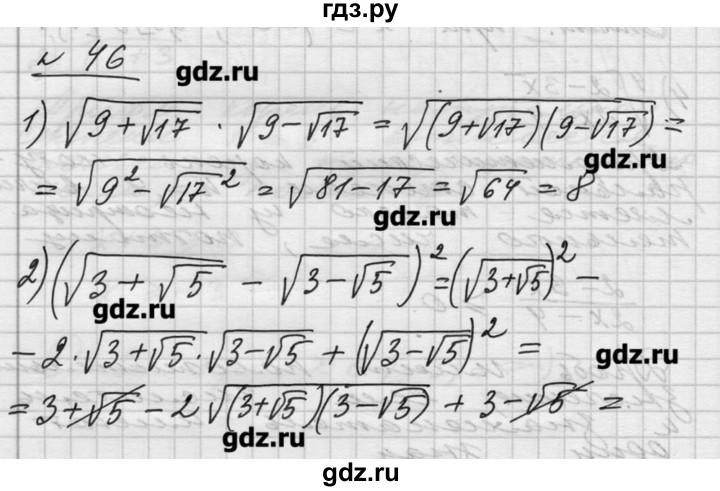 гдз.ру
№ 46
gdz.ru
1) √(9+√17) · √(9-√17) = √((9+√17)(9-√17)) =
gdz.ru
= √(9² - √17²) = √(81-17) = √64 = 8
gdz.ru
2) (√(3+√5) - √(3-√5))² = (√(3+√5))² -
gdz.ru
- 2·√(3+√5)·√(3-√5) + (√(3-√5))² =
gdz.ru
= 3+√5 - 2√((3+√5)(3-√5)) + 3-√5 =
gdz.ru
gdz.ru